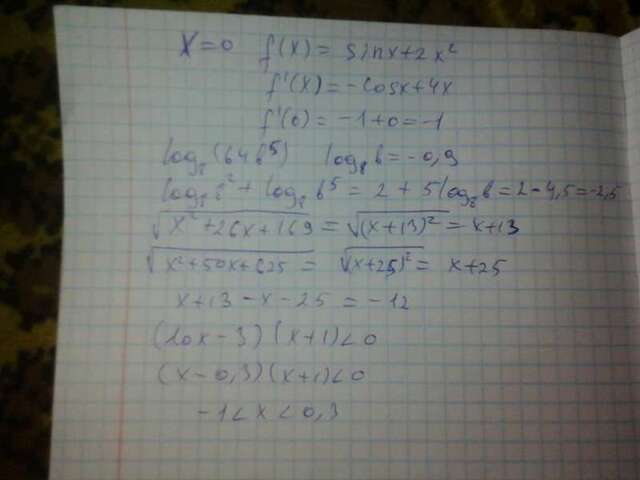 x=0 f(x) = sinx+2x²
f'(x)=-cosx+4x
f'(0)=-1+0=-1
log₈(64b⁵) log₈b=-0,9
log₈8²+log₈b⁵=2+5log₈b=2-4,5=-2,5
√x²+26x+169=√(x+13)²=x+13
√x²+50x+625=√(x+25)²=x+25
x+13-x-25=-12
(10x-3)(x+1)<0
(x-0,3)(x+1)<0
-1<x<0,3